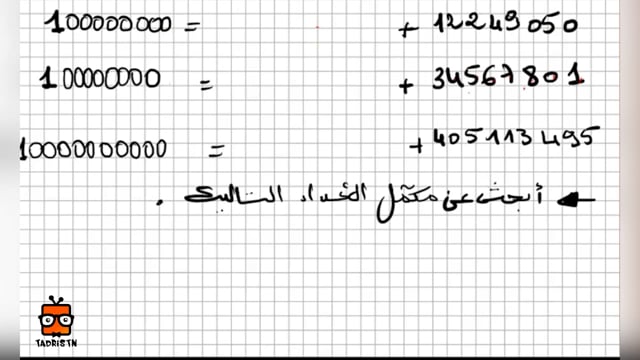 100000000 = + 12249050
100000000 = + 34567801
10000000000 = + 405113495
← أبحث عن مكمّل الأعداد التالية .
TADRISTN